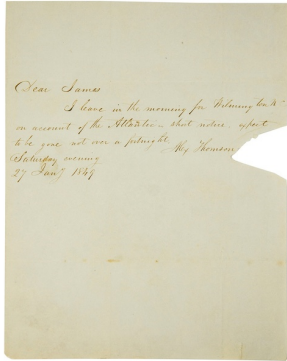 Dear James
I leave in the morning for Wilmington N
on account of the Atlantic - short notice. expect
to be gone not over a fortnight. Alex Thomson
Saturday evening
27 Jany 1849